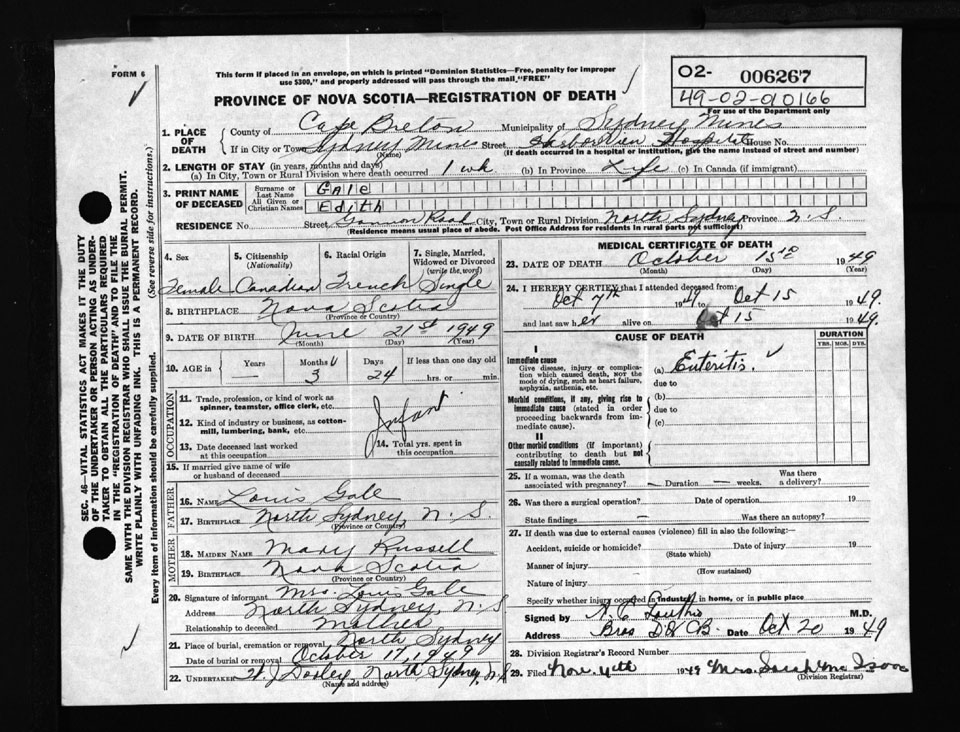 FORM 6
This form if placed in an envelope, on which is printed "Dominion Statistics—Free, penalty for improper
use $300," and properly addressed will pass through the mail, "FREE"
PROVINCE OF NOVA SCOTIA—REGISTRATION OF DEATH
02- 006267
49-02-010166
For use of the Department only
1. PLACE OF DEATH
County of Cape Breton Municipality of Sydney Mines
If in City or Town Sydney Mines Street Harbourview Hospital House No.
(Name) (If death occurred in a hospital or institution, give the name instead of street and number)
2. LENGTH OF STAY (in years, months and days)
(a) In City, Town or Rural Division where death occurred 1 wk (b) In Province Life (c) In Canada (if immigrant)
3. PRINT NAME OF DECEASED
Surname or Last Name Gale
All Given or Christian Names Edith
RESIDENCE No. Street Gannon Road City, Town or Rural Division North Sydney Province N.S.
(Residence means usual place of abode. Post Office Address for residents in rural parts not sufficient)
4. Sex 5. Citizenship (Nationality) 6. Racial Origin 7. Single, Married, Widowed or Divorced (write the word)
Female Canadian French Single
8. BIRTHPLACE Nova Scotia
(Province or Country)
9. DATE OF BIRTH June 21st 1949
(Month) (Day) (Year)
10. AGE in Years Months Days If less than one day old
— 3 24 hrs. or min.
OCCUPATION
11. Trade, profession, or kind of work as spinner, teamster, office clerk, etc.
Infant
12. Kind of industry or business, as cotton-mill, lumbering, bank, etc.
13. Date deceased last worked at this occupation
14. Total yrs. spent in this occupation
15. If married give name of wife or husband of deceased
FATHER
16. NAME Louis Gale
17. BIRTHPLACE North Sydney, N.S.
(Province or Country)
MOTHER
18. MAIDEN NAME Mary Russell
19. BIRTHPLACE Nova Scotia
(Province or Country)
20. Signature of informant Mrs. Louis Gale
Address North Sydney, N.S
Relationship to deceased Mother
21. Place of burial, cremation or removal North Sydney
Date of burial or removal October 17, 1949
22. UNDERTAKER Dooley, North Sydney, N.S
(Name and address)
MEDICAL CERTIFICATE OF DEATH
23. DATE OF DEATH October 15 1949
(Month) (Day) (Year)
24. I HEREBY CERTIFY that I attended deceased from:
Oct 7th 1949 Oct 15 1949.
and last saw her alive on Oct 15 1949.
CAUSE OF DEATH DURATION
YRS. MOS. DYS.
I
Immediate cause
Give disease, injury or complication which caused death, not the mode of dying, such as heart failure, asphyxia, asthenia, etc.
(a) Enteritis.
due to
Morbid conditions, if any, giving rise to immediate cause (stated in order proceeding backwards from immediate cause).
(b)
due to
(c)
II
Other morbid conditions (if important) contributing to death but not causally related to immediate cause.
25. If a woman, was the death associated with pregnancy? — Duration — weeks. Was there a delivery?
26. Was there a surgical operation? Date of operation 19
State findings — Was there an autopsy?
27. If death was due to external causes (violence) fill in also the following:—
Accident, suicide or homicide? Date of injury 19
(State which)
Manner of injury
(How sustained)
Nature of injury
Specify whether injury occurred in industry, in home, or in public place
Signed by M.D.
Address Bras D'or CB. Date Oct 20 1949
28. Division Registrar's Record Number
29. Filed Nov. 4th 1949 Mrs. Sarah
(Division Registrar)
SEC. 46—VITAL STATISTICS ACT MAKES IT THE DUTY
OF THE UNDERTAKER OR PERSON ACTING AS UNDER-
TAKER TO OBTAIN ALL THE PARTICULARS REQUIRED
IN THE "REGISTRATION OF DEATH" AND TO FILE THE
SAME WITH THE DIVISION REGISTRAR WHO SHALL ISSUE THE BURIAL PERMIT.
WRITE PLAINLY WITH UNFADING INK. THIS IS A PERMANENT RECORD.
Every item of information should be carefully supplied. (See reverse side for instructions.)